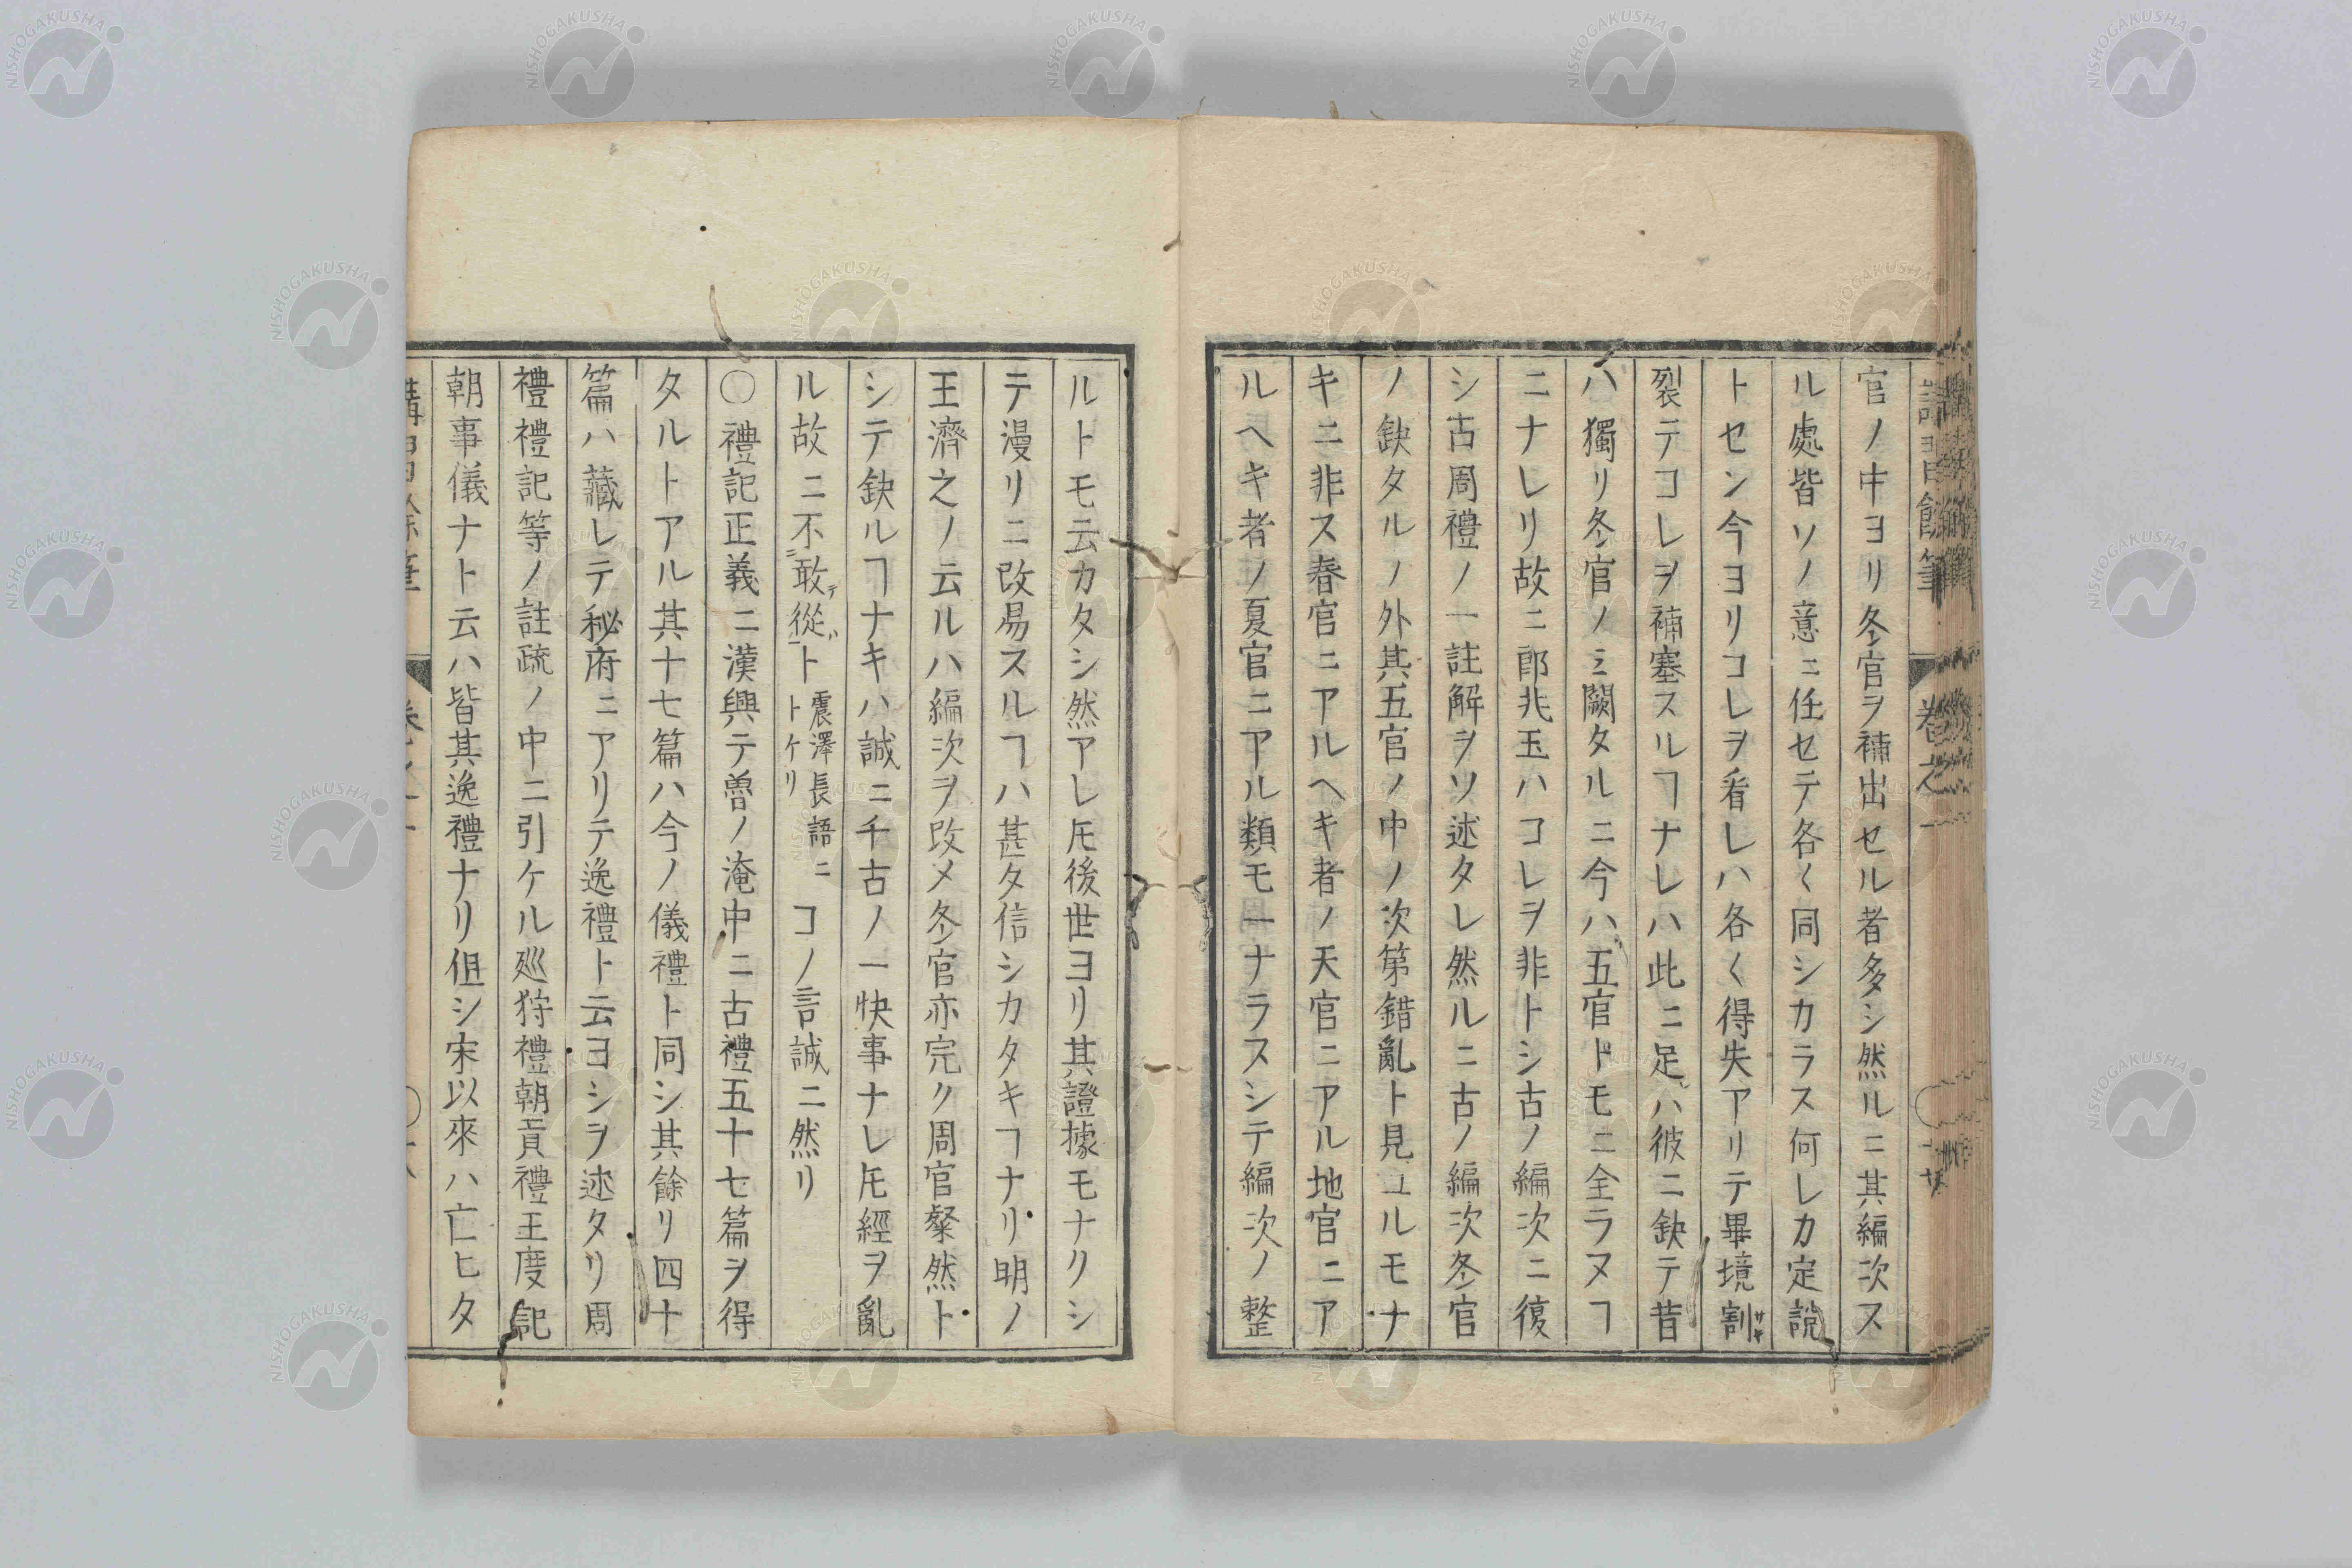 官ノ中ヨリ冬官ヲ補出セル者多シ然ルニ其編次ス
ル處皆ソノ意ニ任セテ各〱同シカラス何レカ定說
トセン今ヨリコレヲ看レハ各〱得失アリテ畢境割サキ
裂テコレヲ補塞スルヿナレハ此ニ足レハ彼ニ缺テ昔
ハ獨リ冬官ノミ闕タルニ今ハ五官ドモニ全ラヌヿ
ニナレリ故ニ郎兆玉ハコレヲ非トシ古ノ編次ニ復
シ古周禮ノ一註解ヲソ述タレ然ルニ古ノ編次冬官
ノ缺タルノ外其五官ノ中ノ次第錯亂ト見ユルモナ
キニ非ス春官ニアルヘキ者ノ天官ニアル地官ニア
ルヘキ者ノ夏官ニアル類モ一ナラスシテ編次ノ整
ルトモ云カタシ然アレ𪜈後世ヨリ其證據モナクシ
テ漫リニ改易スルヿハ甚タ信シカタキヿナリ明ノ
王濟之ノ云ルハ編次ヲ改メ冬官亦完ク周官粲然ト
シテ缺ルヿナキハ誠ニ千古ノ一快事ナレ𪜈經ヲ亂
ル故ニ不敢テ從ト震澤長語ニトケリコノ言誠ニ然リ
〇禮記正義ニ漢興テ魯ノ淹中ニ古禮五十七篇ヲ得
タルトアル其十七篇ハ今ノ儀禮ト同シ其餘リ四十
篇ハ藏レテ秘府ニアリテ逸禮ト云ヨシヲ述タリ周
禮禮記等ノ註疏ノ中ニ引ケル廵狩禮朝貢禮王度記
朝事儀ナト云ハ皆其逸禮ナリ但シ宋以來ハ亡ヒタ